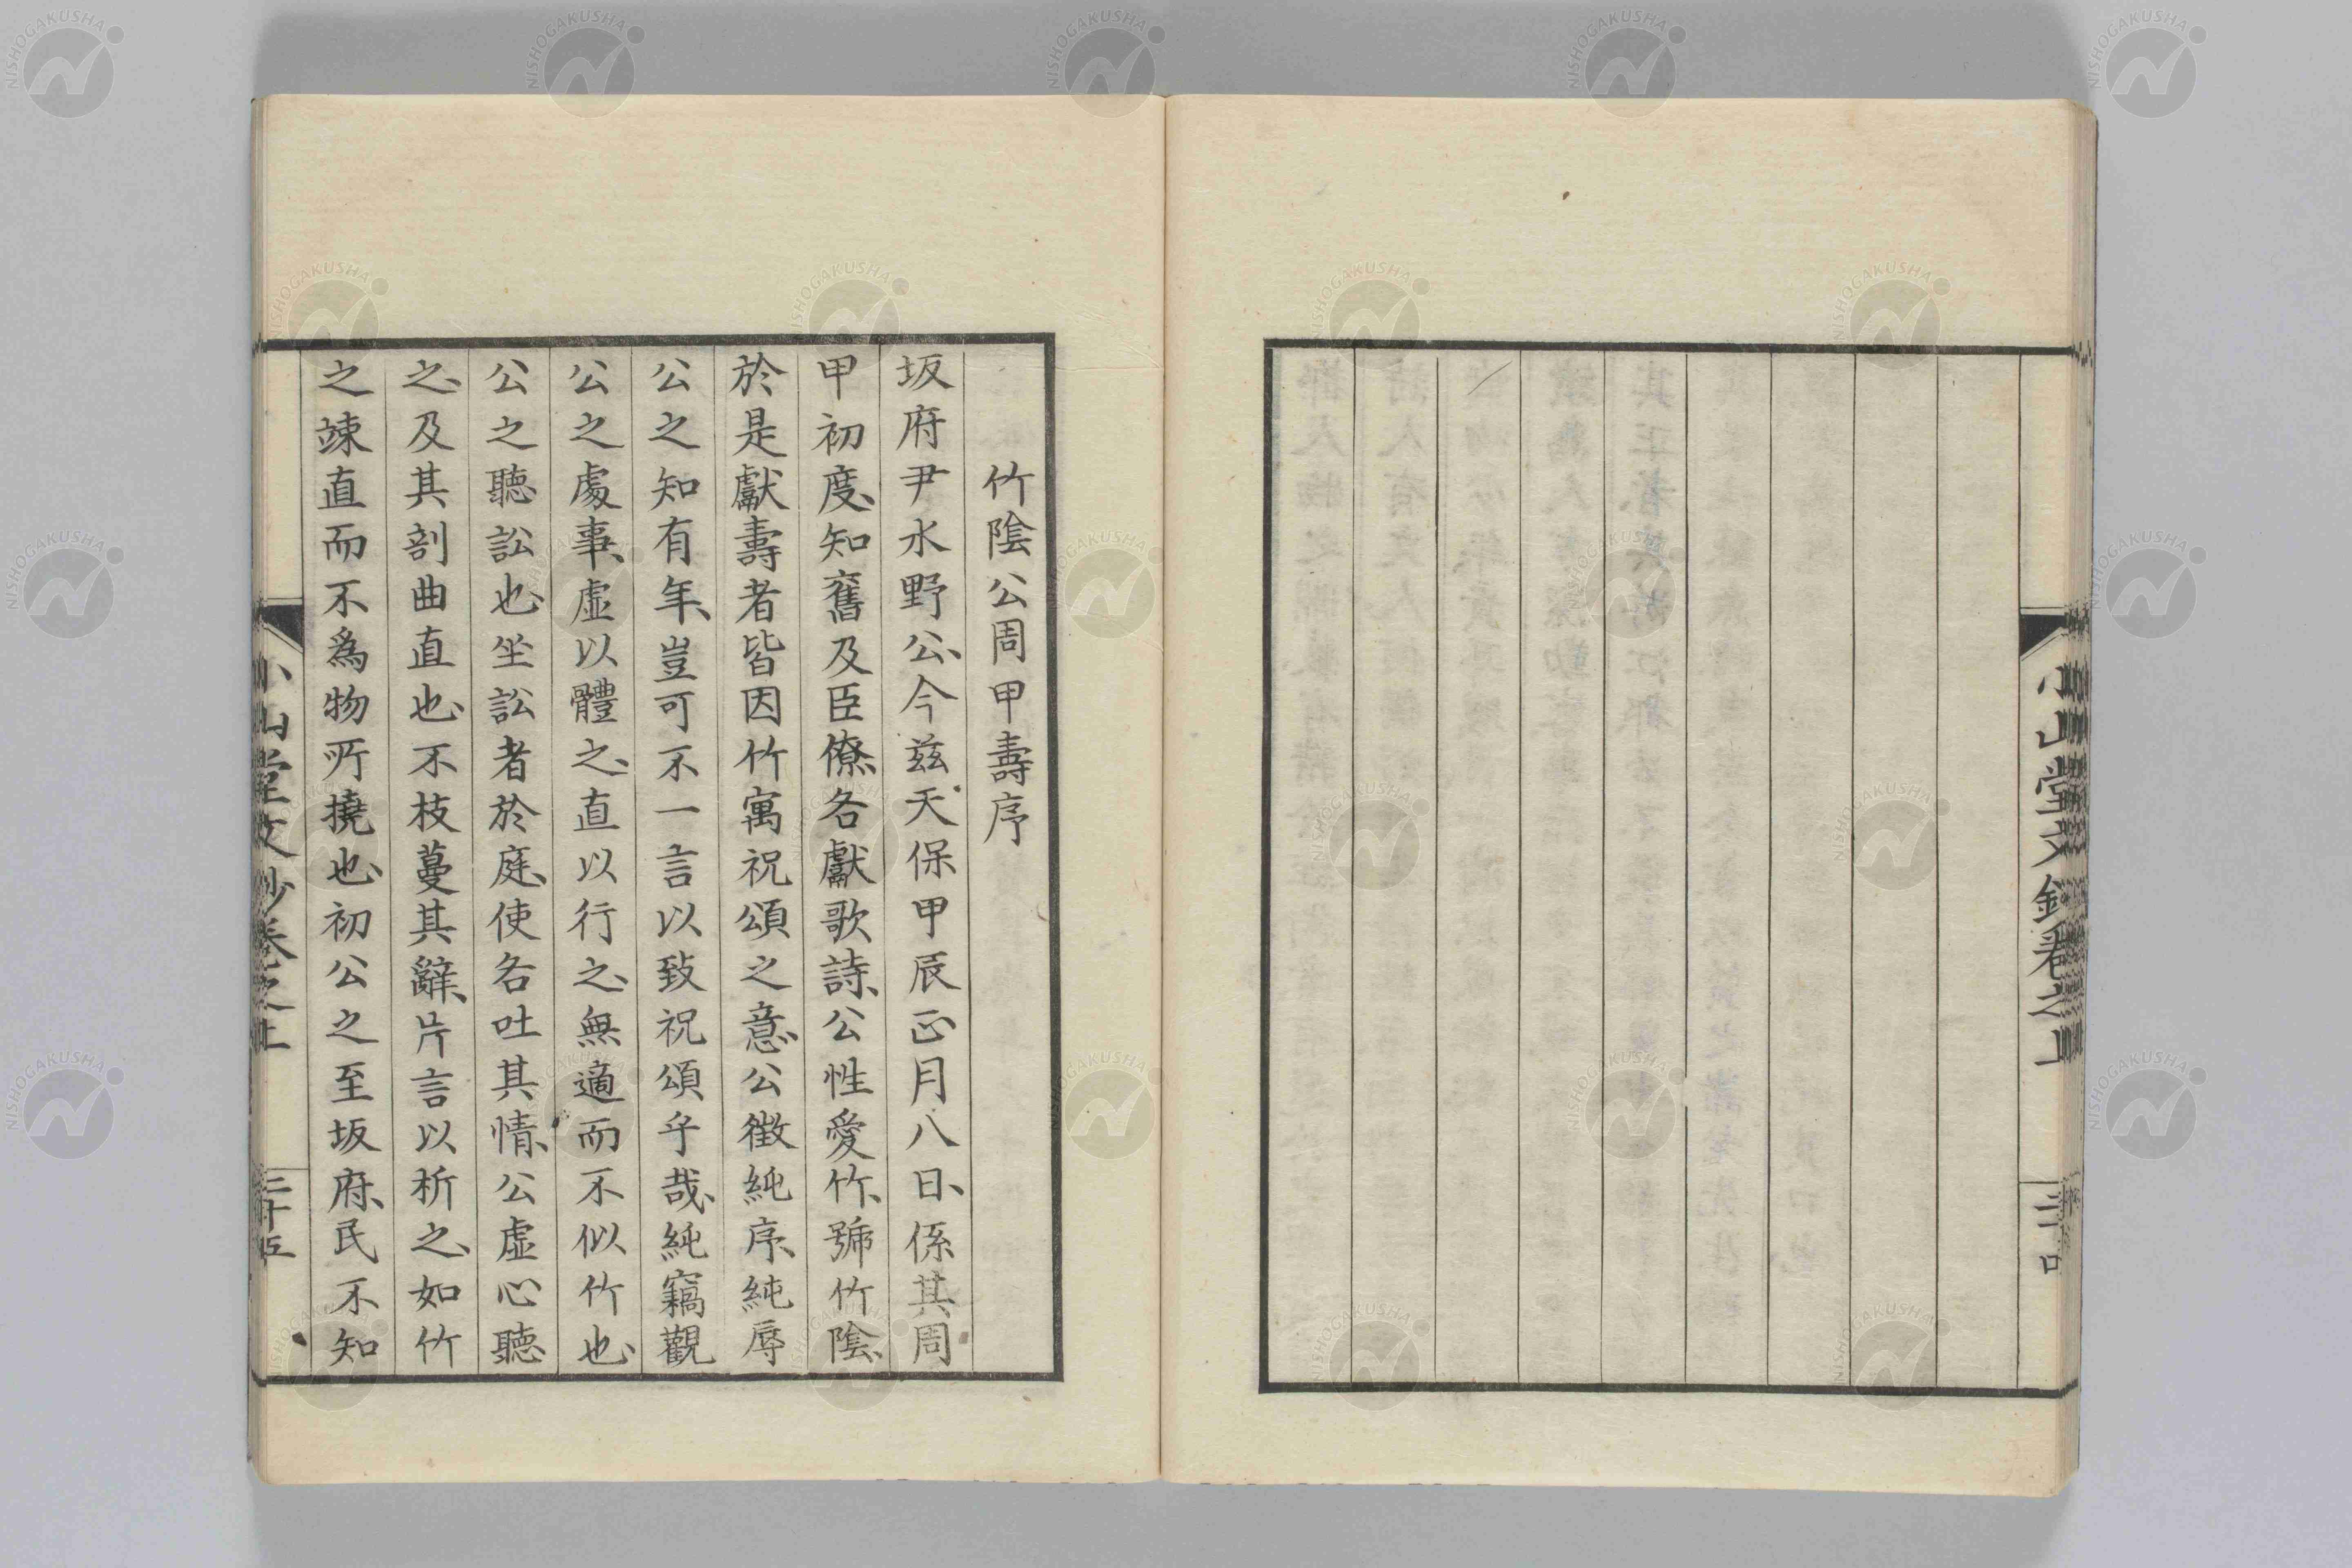 小山堂文鈔卷之上
二十四
竹陰公周甲壽序
坂府尹水野公、今茲天保甲辰正月八日、係其周
甲初度、知舊及臣僚、各獻歌詩、公性愛竹、號竹陰、
於是獻壽者皆因竹寓祝頌之意、公徵純序、純辱
公之知有年、豈可不一言以致祝頌乎哉、純竊觀
公之處事、虛以體之、直以行之、無適而不似竹也、
公之聽訟也、坐訟者於庭、使各吐其情、公虛心聽
之、及其剖曲直也、不枝蔓其辭、片言以析之、如竹
之竦直而不爲物所撓也、初公之至坂府、民不知
小山堂文鈔卷之上
二十五
NISHOGAKUSHA